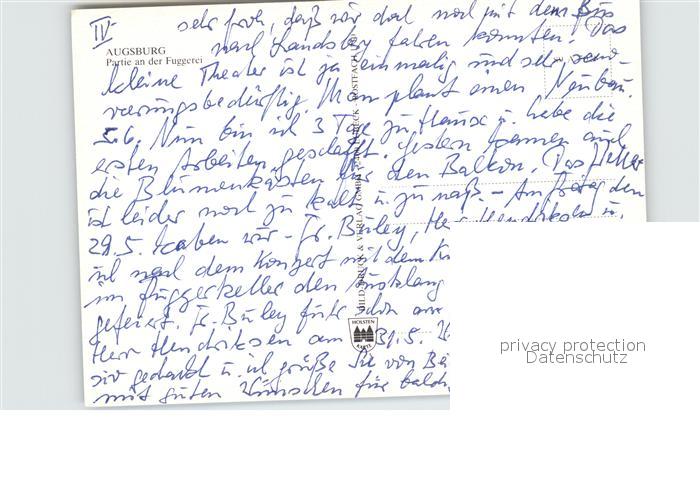 IV
sehr froh, daß wir doch noch mit dem Bus
AUGSBURG
Partie an der Fuggerei
nach Landsberg fahren konnten. Das
kleine Theater ist ja einmalig und sehr reno-
vierungsbedürftig. Man plant einen Neubau.
5.6. Nun bin ich 3 Tage zu Hause u. habe die
ersten Arbeiten geschafft. Gestern kamen auch
die Blumenkästen für den Balkon. Das Wetter
ist leider noch zu kalt u. zu naß. – Am Freitag den
29.5. haben wir – Fr. Buley, Herr Hendriksen u.
ich nach dem Konzert mit dem
im Fuggerkeller den Ausklang
gefeiert. Fr. Buley fuhr schon am
Herr Hendriksen am 31.5.
sie gedacht u. ich grüße Sie von
mit guten Wünschen für
BILD, DRUCK & VERLAG GMBH
POSTFACH
HOLSTEN
KARTE
privacy protection
Datenschutz